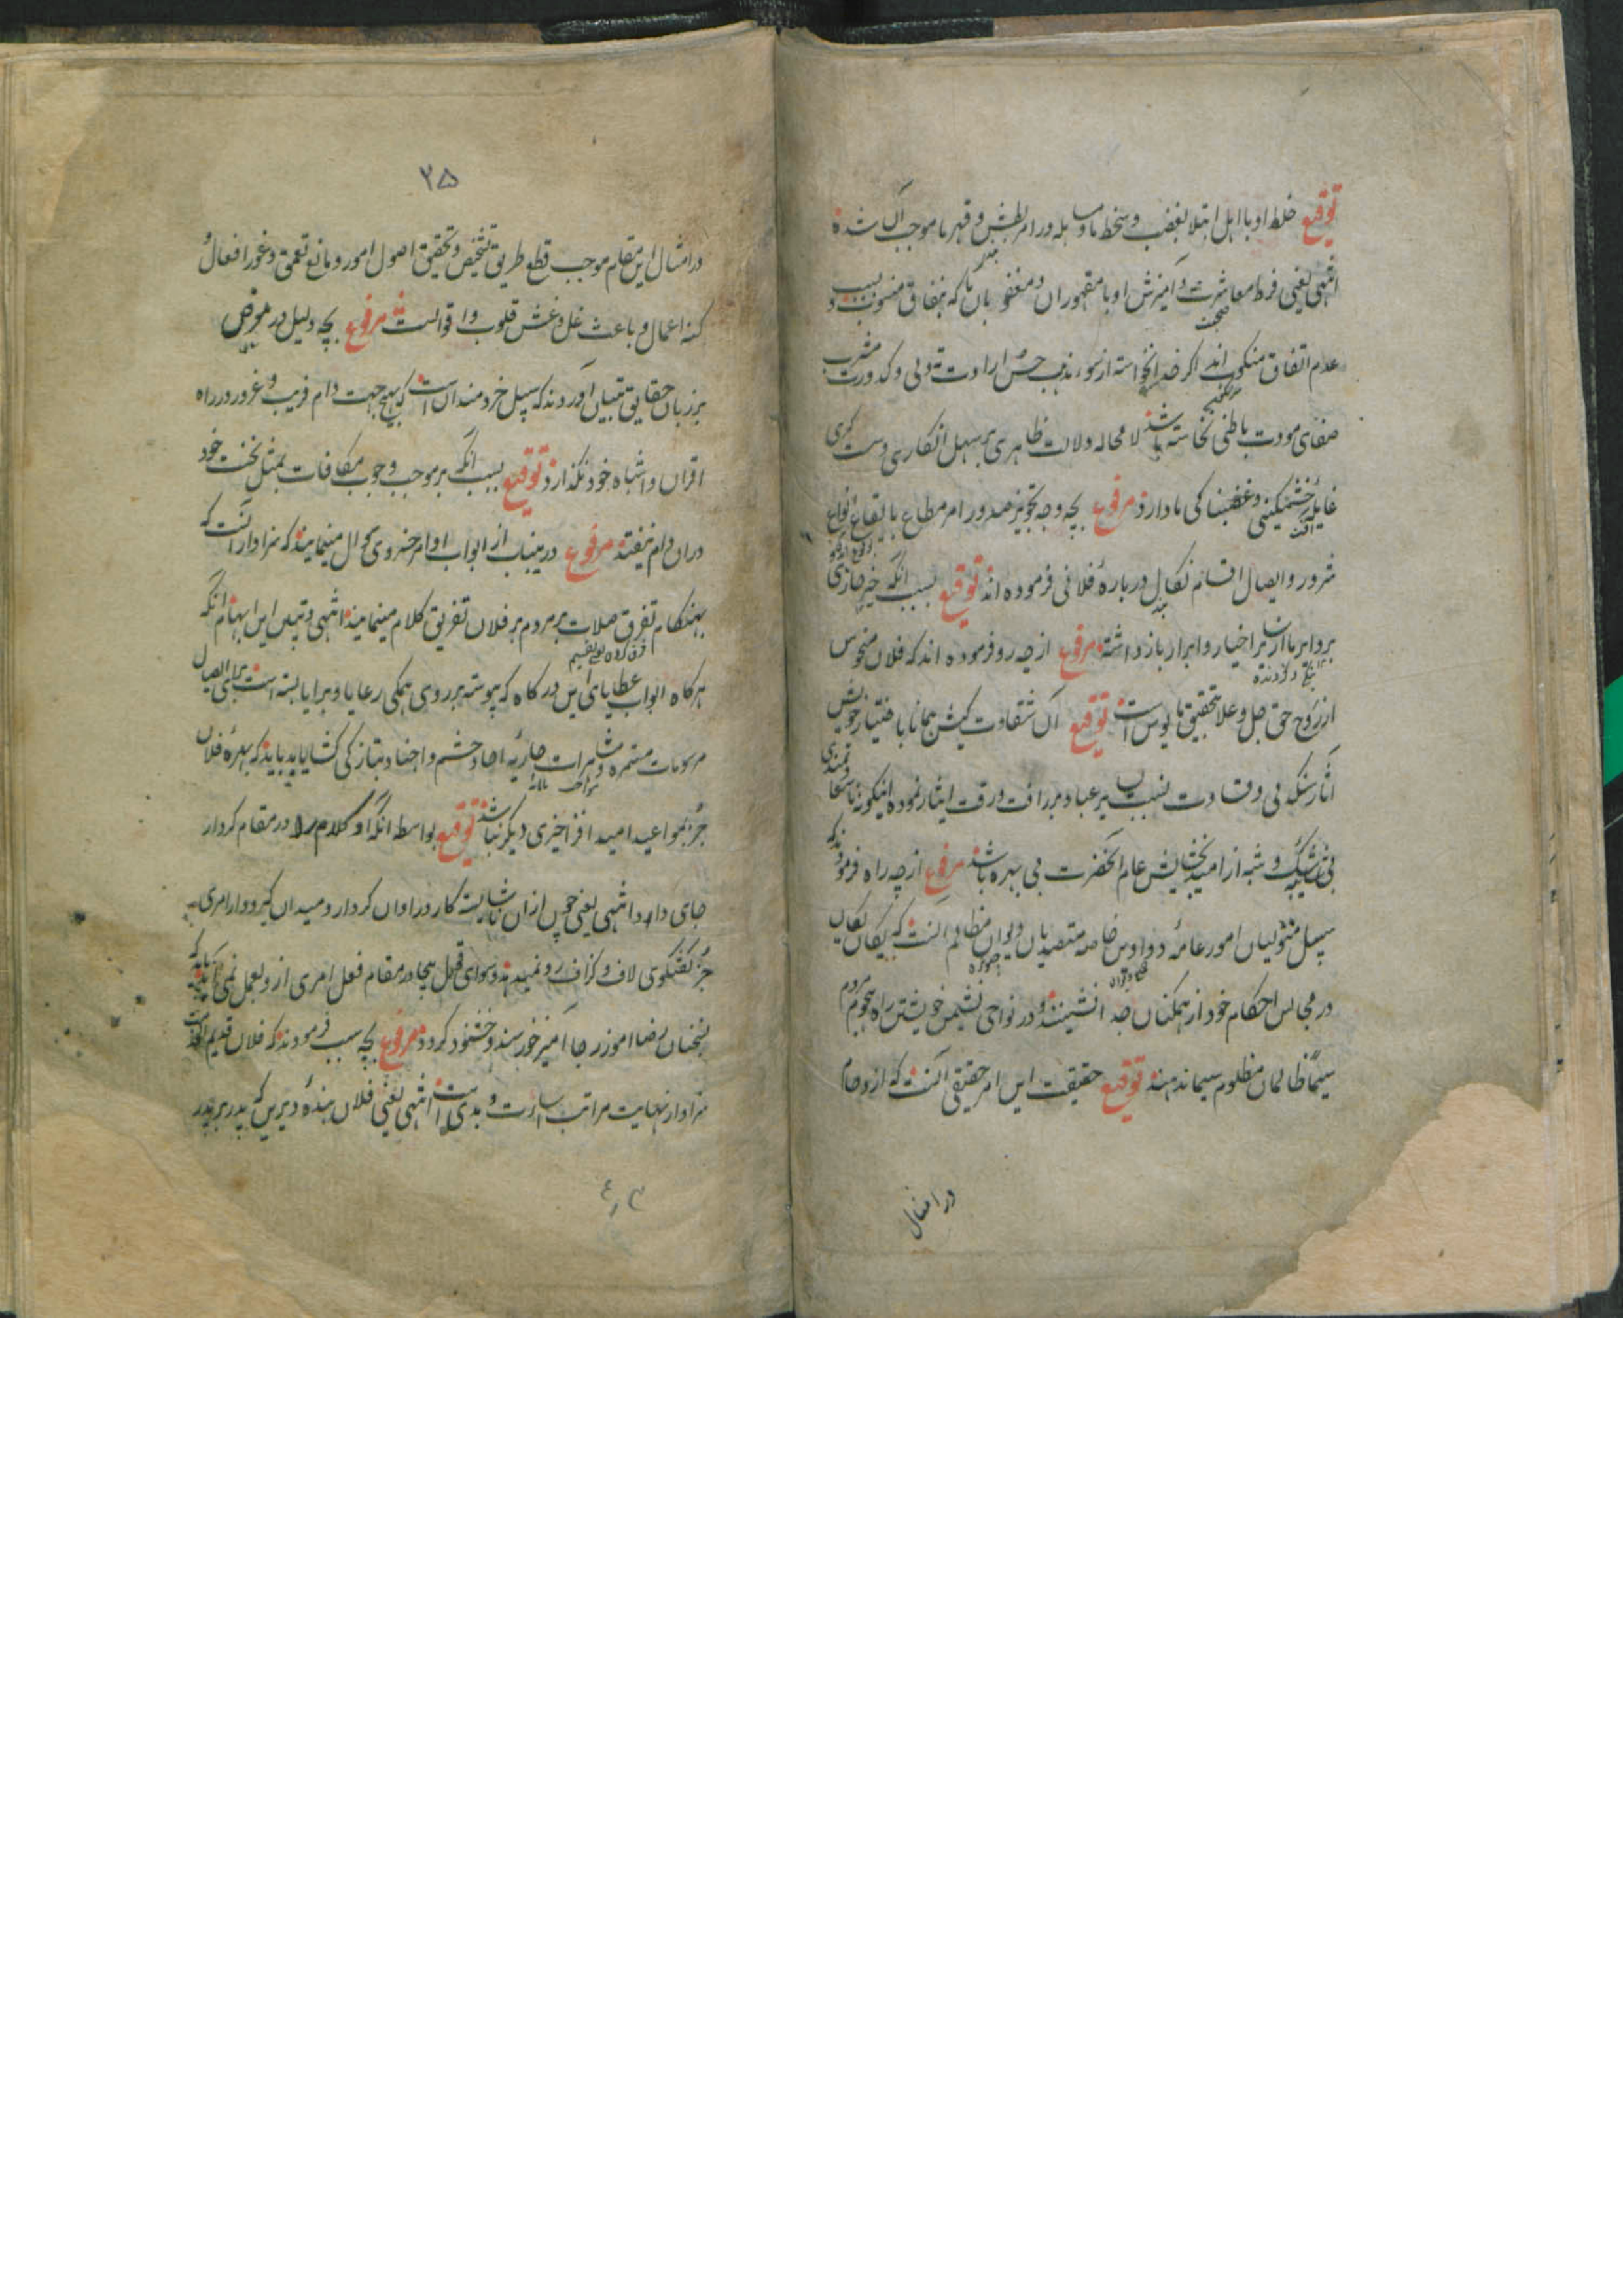 توقیع خلط او با اهل ابتلا بغضب و سخط ما و مساهله در امر بطش و قهر ما موجب آن شده
انتهی یعنی فرط معاشرت و آمیزش او با مقهوران و مغضوبان ما که بنفاق منسوب و بسبب
صحبت
عدم اتفاق منکوب اند اگر خدانخواسته از سوء مذهب حسن ارادت تو بی و کدورت مشرب
صفای مودت باطنی نخاسته باشد لا محاله دلالت ظاهری بر سهل انکاری و سست گیری
غایله خشمگینی و غضبناکی ما دارد مرفوع بچه وجه تجویز صدور امر مطاع بایقاع انواع
شرور و ایصال اقسام نکال درباره فلانی فرموده اند توقیع بسبب آنکه خیر جاری
بر دایر ما از برا اخیار و ابرار باز داشته مرفوع از چه رو فرموده اند که فلان منحوس
از روح حق جل و علا بتحقیق مایوس است توقیع آن شقاوت کیش همانا باختیار خویش
آثار سنگدلی و قساوت نسبت بر عباد بر رافت و رقت ایثار نموده اینگونه
بی شک و شبه از امید بخشایش عام آنحضرت بی بهره باشد مرفوع از چه راه فرمودند که
سبیل متولیان امور عامه دواوین خاصه متصدیان دیوان مظالم آنست که یکان یکان
در مجالس احکام خود از همگنان جدا نشینند و در نواحی نشیمن خویشتن راه هجوم مردم
سیما ظالمان مظلوم سیما ندهند توقیع حقیقت این امر حقیقی آنست که ازدحام
در امثال
۲۵
در امثال این مقام موجب قطع طریق تشخیص و تحقیق اصول امور و مانع تعمق و غور افعال
کنه اعمال و باعث غل و غش قلوب و اقوالست مرفوع بچه دلیل در معرض
بر زبان حقایق تبیان آوردند که سبیل خردمندان آنست که بهیچ جهت دام فریب و غرور در راه
اقران و اشباه خود نگذارد توقیع بسبب آنکه بر موجب وجوب مکافات بمثل نخست خود
دران دام نیفتند مرفوع درینباب از ابواب اوامر خسروی سوال مینمایند که سزاوار آنست که
بهنگام تفرق صلات بر مردم بر فلان تفریق کلام مینمایند انتهی و تبیین این ابهام آنکه
هرگاه ابواب عطایای این درگاه که پیوسته بر روی همگی رعایا و برایا بسته است برای ایصال
مرسومات مستمره و مبرات جاریه احاد حشم و اجناد بتازگی گشاید باید که بهره فلان
جز بمواعید امید افزا چیزی دیگر نباشد توقیع بواسطه آنکه او کلام را در مقام کردار
جای دارد انتهی یعنی چون ازان ناشایسته کار در اوان کردار و میدان گیرودار امری
جز گفتگوی لاف و گزاف رو نمیدهد و سوای قول بیجا در مقام فعل امری ازو بعمل نمی آید باید که
بسخنان رضا آموز رجا آمیز خورسند و خشنود گردد مرفوع بچه سبب فرمودند که فلان قدیم الخدمت
سزاوار نهایت مراتب اساءت و بدیست انتهی یعنی فلان بنده دیرین که پدر بر پدر